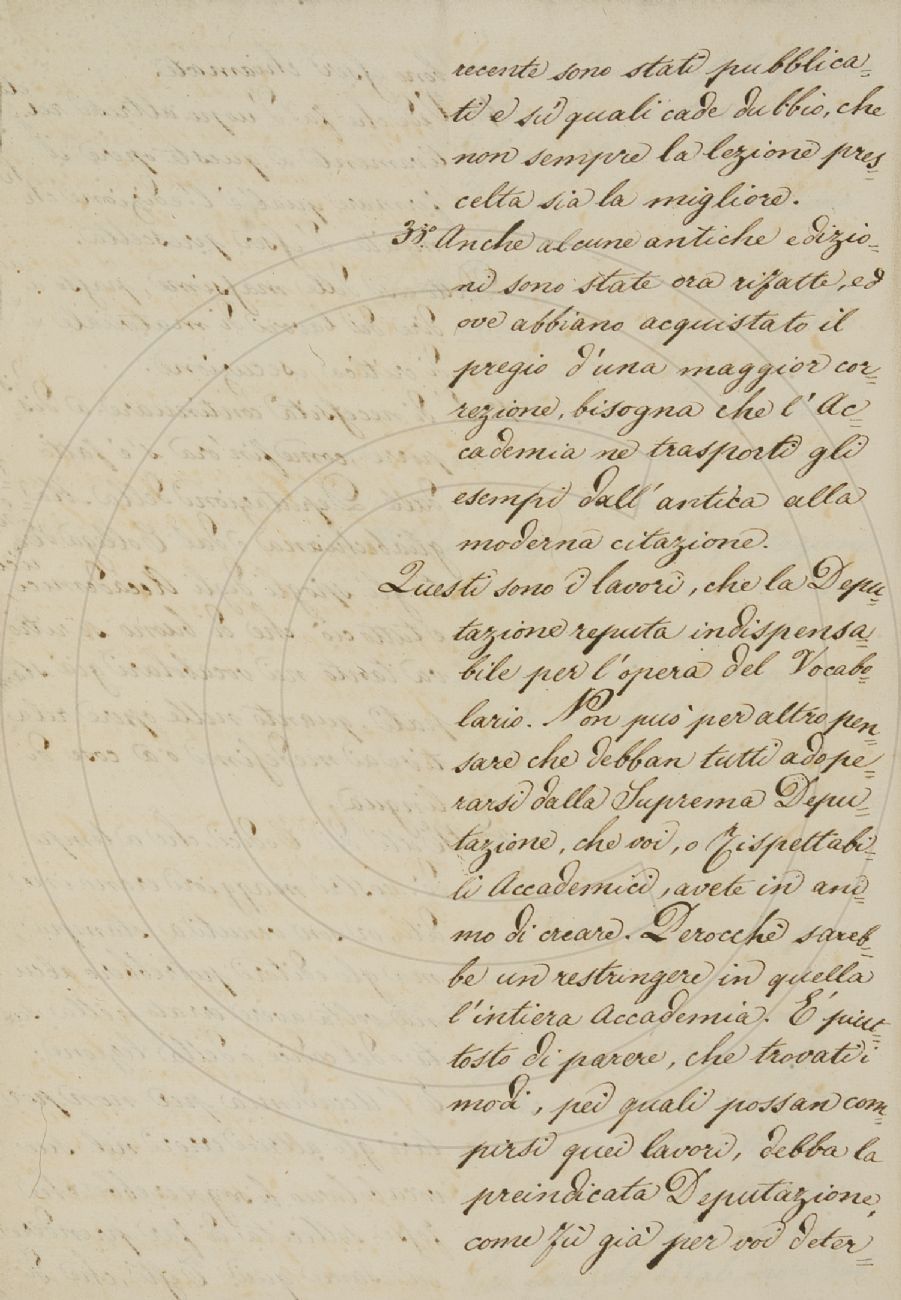 recente sono stati pubblica=
ti e sù quali cade dubbio, che
non sempre la lezione pres=
celta sia la migliore.
Anche alcune antiche edizio=
ni sono state ora rifatte, ed
ove abbiano acquistato il
pregio d'una maggior cor=
rezione, bisogna che l'Ac=
cademia ne trasporti gli
esempi dall'antica alla
moderna citazione.
Questi sono i lavori, che la Depu=
tazione reputa indispensa=
bile per l'opera del Vocabo=
lario. Non può per altro pen=
sare che debban tutti adope=
rarsi dalla Suprema Depu=
tazione, che voi, o Rispettabi=
li Accademici, avete in ani=
mo di creare. Perocchè sareb=
be un restringere in quella
l'intiera Accademia. E' piut=
tosto di parere, che trovati i
modi, pei quali possan com=
pirsi quei lavori, debba la
preindicata Deputazione,
come fù già per voi deter=